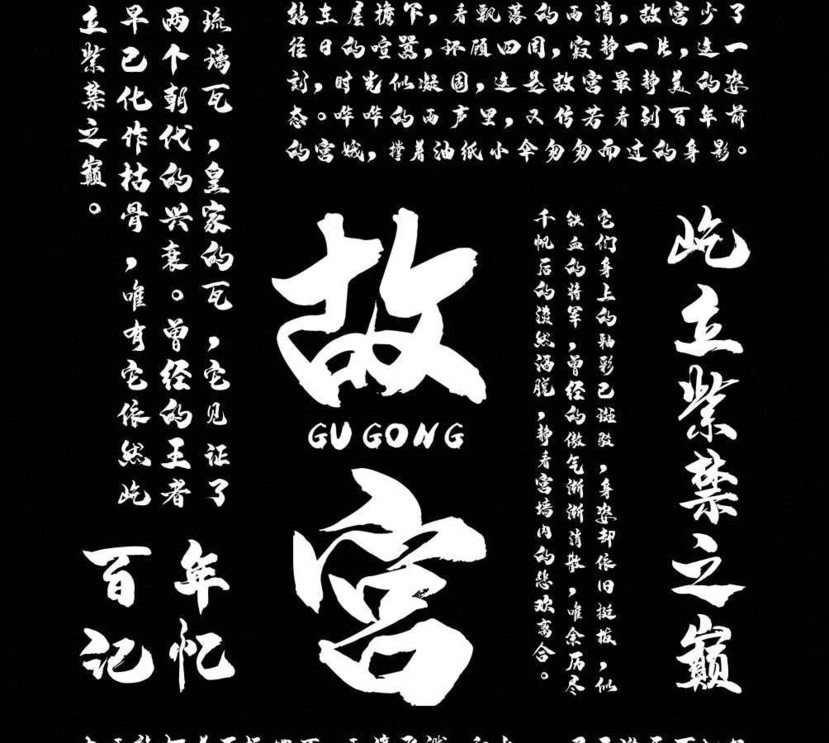 站在屋檐下，看飘落的雨滴，故宫少了
往日的喧嚣，环顾四周，寂静一片，这一
刻，时光似凝固，这是故宫最静美的姿
态。哗哗的雨声里，又仿若看到百年前
的宫娥，撑着油纸小伞匆匆而过的身影。
琉璃瓦，皇家的瓦，它见证了
两个朝代的兴衰。曾经的王者
早已化作枯骨，唯有它依然屹
立紫禁之巅。
故
GU GONG
宫
屹立紫禁之巅
它们身上的釉彩已斑驳，身姿却依旧挺拔，似
铁血的将军，曾经的傲气渐渐消散，唯余历尽
千帆后的淡然洒脱，静看宫墙内的悲欢离合。
百年
记忆